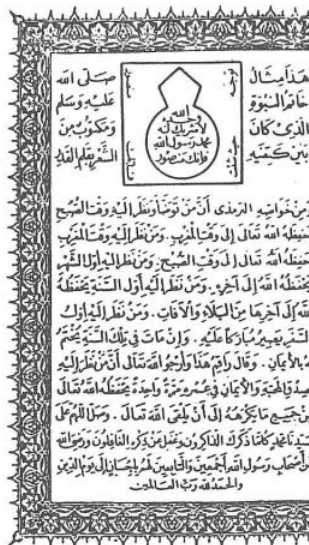 هَذَا مِثَالُ
خَاتَمِ النُّبُوَّةِ
الَّذِي كَانَ
بَيْنَ كَتِفَيْهِ
الله
وحده
لا شريك له
محمد رسول الله
فإنك منصور
صَلَّى الله
عَلَيْهِ وَسَلَّم
وَمَكْتُوبٌ مِنَ
بِقَلَمِ
وَمِنْ خَوَاصِّهِ التِّرْمِذِي أَنَّ مَنْ تَوَضَّأَ وَنَظَرَ إِلَيْهِ وَقْتَ الصُّبْحِ
حَفِظَهُ اللهُ تَعَالَى إِلَى وَقْتِ الْمَغْرِبِ . وَمَنْ نَظَرَ إِلَيْهِ وَقْتَ الْمَغْرِبِ
حَفِظَهُ اللهُ تَعَالَى إِلَى وَقْتِ الصُّبْحِ . وَمَنْ نَظَرَ إِلَيْهِ أَوَّلَ الشَّهْرِ
يَحْفَظُهُ اللهُ إِلَى آخِرِهِ . وَمَنْ نَظَرَ إِلَيْهِ أَوَّلَ السَّنَةِ يَحْفَظُهُ
اللهُ إِلَى آخِرِهَا مِنَ الْبَلَاءِ وَالْآفَاتِ . وَمَنْ نَظَرَ إِلَيْهِ أَوَّلَ
السَّفَرِ يَصِيرُ مُبَارَكًا عَلَيْهِ . وَإِنْ مَاتَ فِي تِلْكَ السَّنَةِ يُخْتَمُ
لَهُ بِالْإِيمَانِ . وَقَالَ رَاقِمُ هَذَا وَأَرْجُو اللهَ تَعَالَى أَنَّ مَنْ نَظَرَ إِلَيْهِ
وَالْمَحَبَّةِ وَالْإِيمَانِ فِي عُمْرِهِ مَرَّةً وَاحِدَةً يَحْفَظُهُ اللهُ تَعَالَى
مِنْ جَمِيعِ مَا يَكْرَهُهُ إِلَى أَنْ يَلْقَى اللهَ تَعَالَى . وَصَلِّ اللَّهُمَّ عَلَى
سَيِّدِنَا مُحَمَّدٍ كُلَّمَا ذَكَرَكَ الذَّاكِرُونَ وَغَفَلَ عَنْ ذِكْرِهِ الْغَافِلُونَ وَرَضِيَ اللهُ
عَنْ أَصْحَابِ رَسُولِ اللهِ أَجْمَعِينَ وَالتَّابِعِينَ لَهُمْ بِإِحْسَانٍ إِلَى يَوْمِ الدِّينِ
وَالْحَمْدُ لِلهِ رَبِّ الْعَالَمِينَ